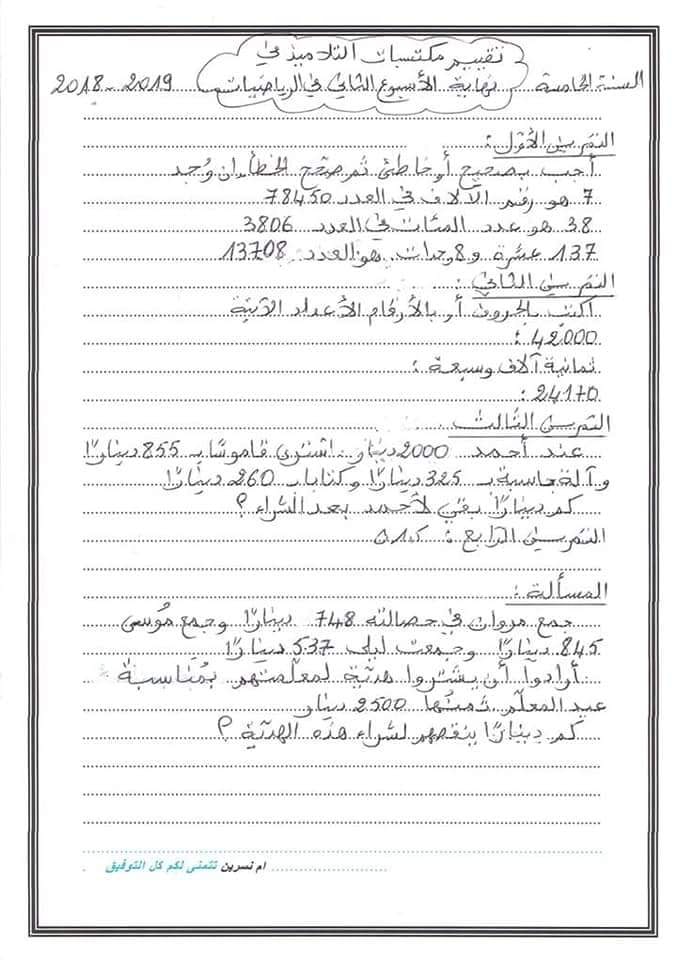 تقييم مكتسبات التلاميذ في
السنة الخامسة نهاية الأسبوع الثاني في الرياضيات 2018-2019
التمرين الأول:
أجب بصحيح أو خاطئ ثم صحح الخطأ إن وُجد
7 هو رقم الآلاف في العدد 78450
38 هو عدد المئات في العدد 3806
137 عشرة و 8 وحدات هو العدد 13708
التمرين الثاني:
اكتب بالحروف أو بالأرقام الأعداد الآتية
42000:
ثمانية آلاف وسبعة:
24170:
التمرين الثالث
عند أحمد 2000 دينار. اشترى قاموسًا بـ 855 دينارًا
وآلة حاسبة بـ 325 دينارًا وكتابا بـ 260 دينارًا
كم دينارًا بقي لأحمد بعد الشراء؟
التمرين الرابع:
المسألة:
جمع مروان في حصالته 748 دينارًا وجمع مُوسى
845 دينارًا وجمعت ليلى 537 دينارًا
أرادوا أن يشتروا هديّة لمعلّمتهم بمُناسبة
عيد المعلّم ثمنُها 2500 دينار
كم دينارًا ينقصهم لشراء هذه الهديّة؟
ام نسرين تتمنى لكم كل التوفيق